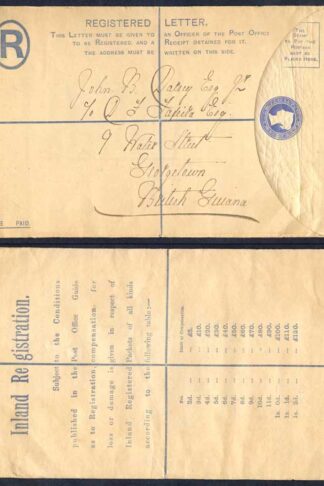 REGISTERED LETTER.
THIS LETTER MUST BE GIVEN TO AN OFFICER OF THE POST OFFICE
TO BE REGISTERED, AND A RECEIPT OBTAINED FOR IT.
THE ADDRESS MUST BE WRITTEN ON THIS SIDE.
THE STAMP TO PAY THE POSTAGE MUST BE PLACED HERE.
R
John B.
Esq
c/o
Esq.
9 Water Street
Georgetown
British Guiana
PAID.
Inland Registration.
Subject to the Conditions
published in the Post Office Guide
as to Registration, compensation for
loss or damage is given in respect of
Inland Registered Packets of all kinds
according to the following table:—
Fee. Limit of Compensation.
2d. ... £5.
3d. ... £10.
4d. ... £20.
5d. ... £30.
6d. ... £40.
7d. ... £50.
8d. ... £60.
9d. ... £70.
10d. ... £80.
11d. ... £90.
1s. 0d. ... £100.
1s. 1d. ... £110.
1s. 2d. ... £120.